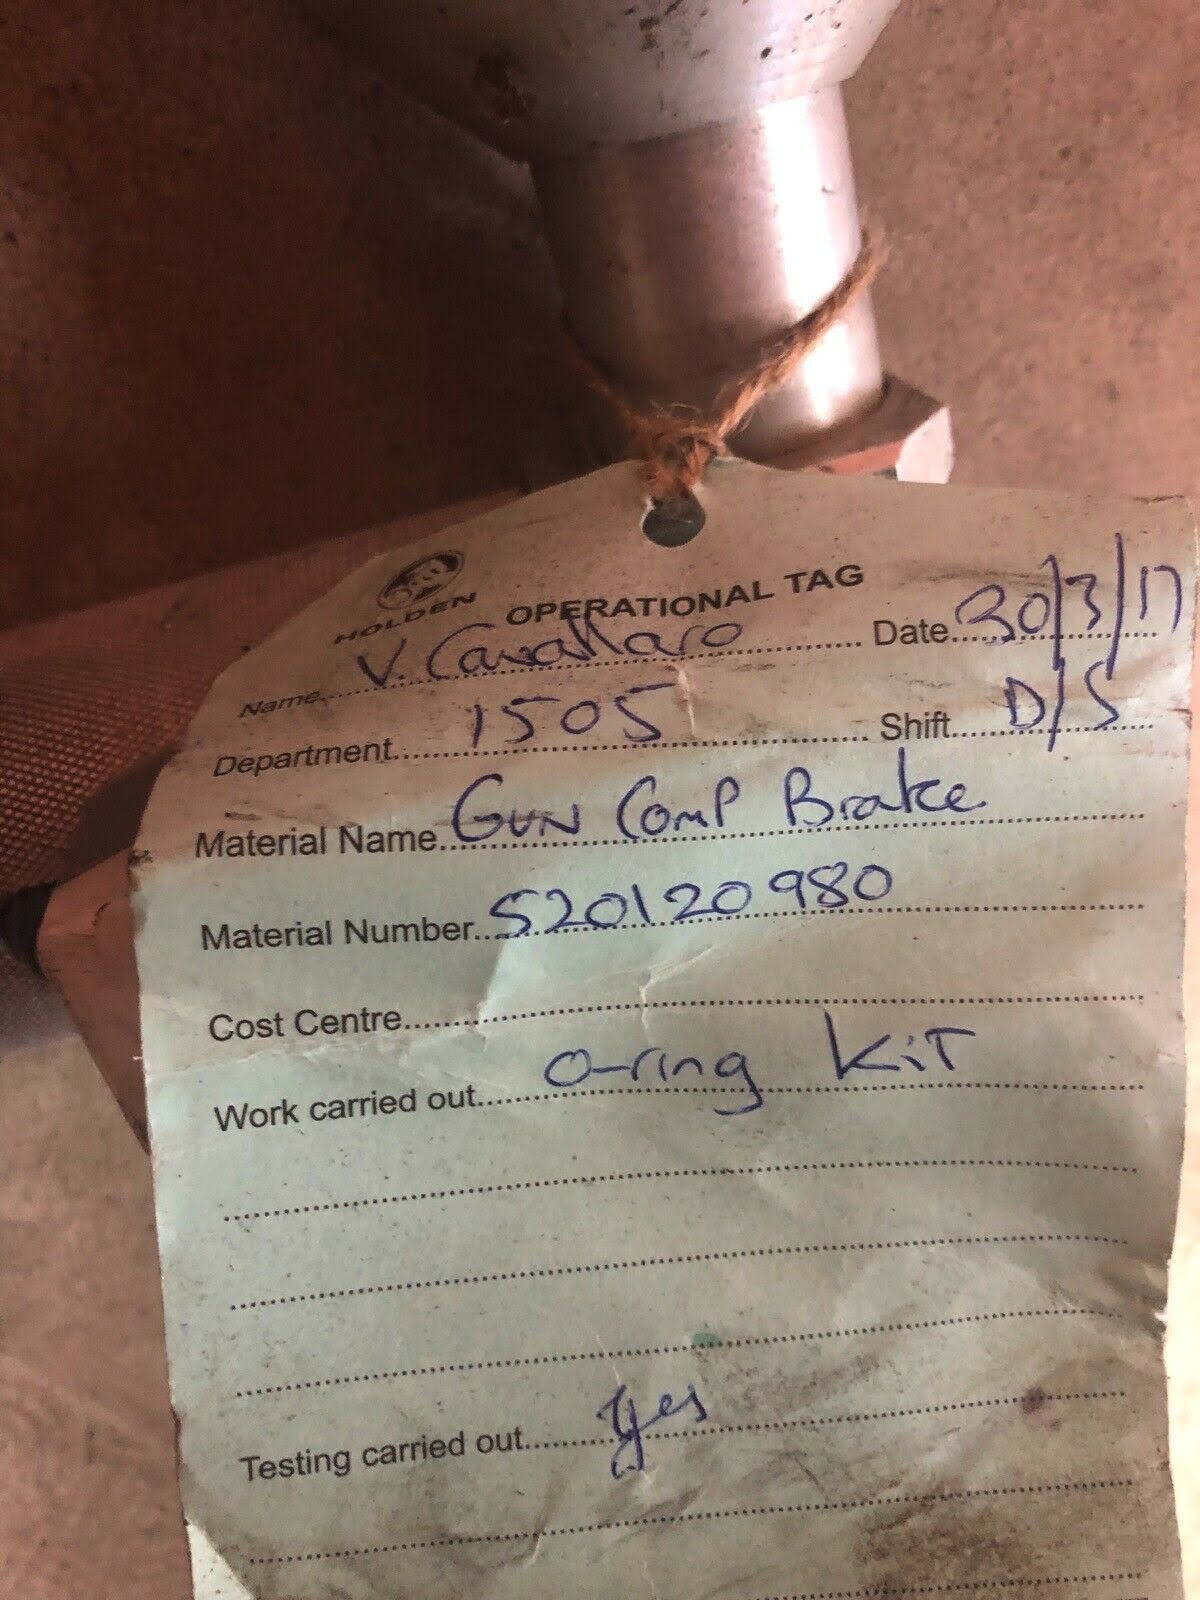 HOLDEN OPERATIONAL TAG
Name V. Cavallaro Date 30/3/17
Department 1505 Shift D/S
Material Name GUN COMP Brake
Material Number 520120980
Cost Centre
Work carried out O-ring KiT
Testing carried out yes